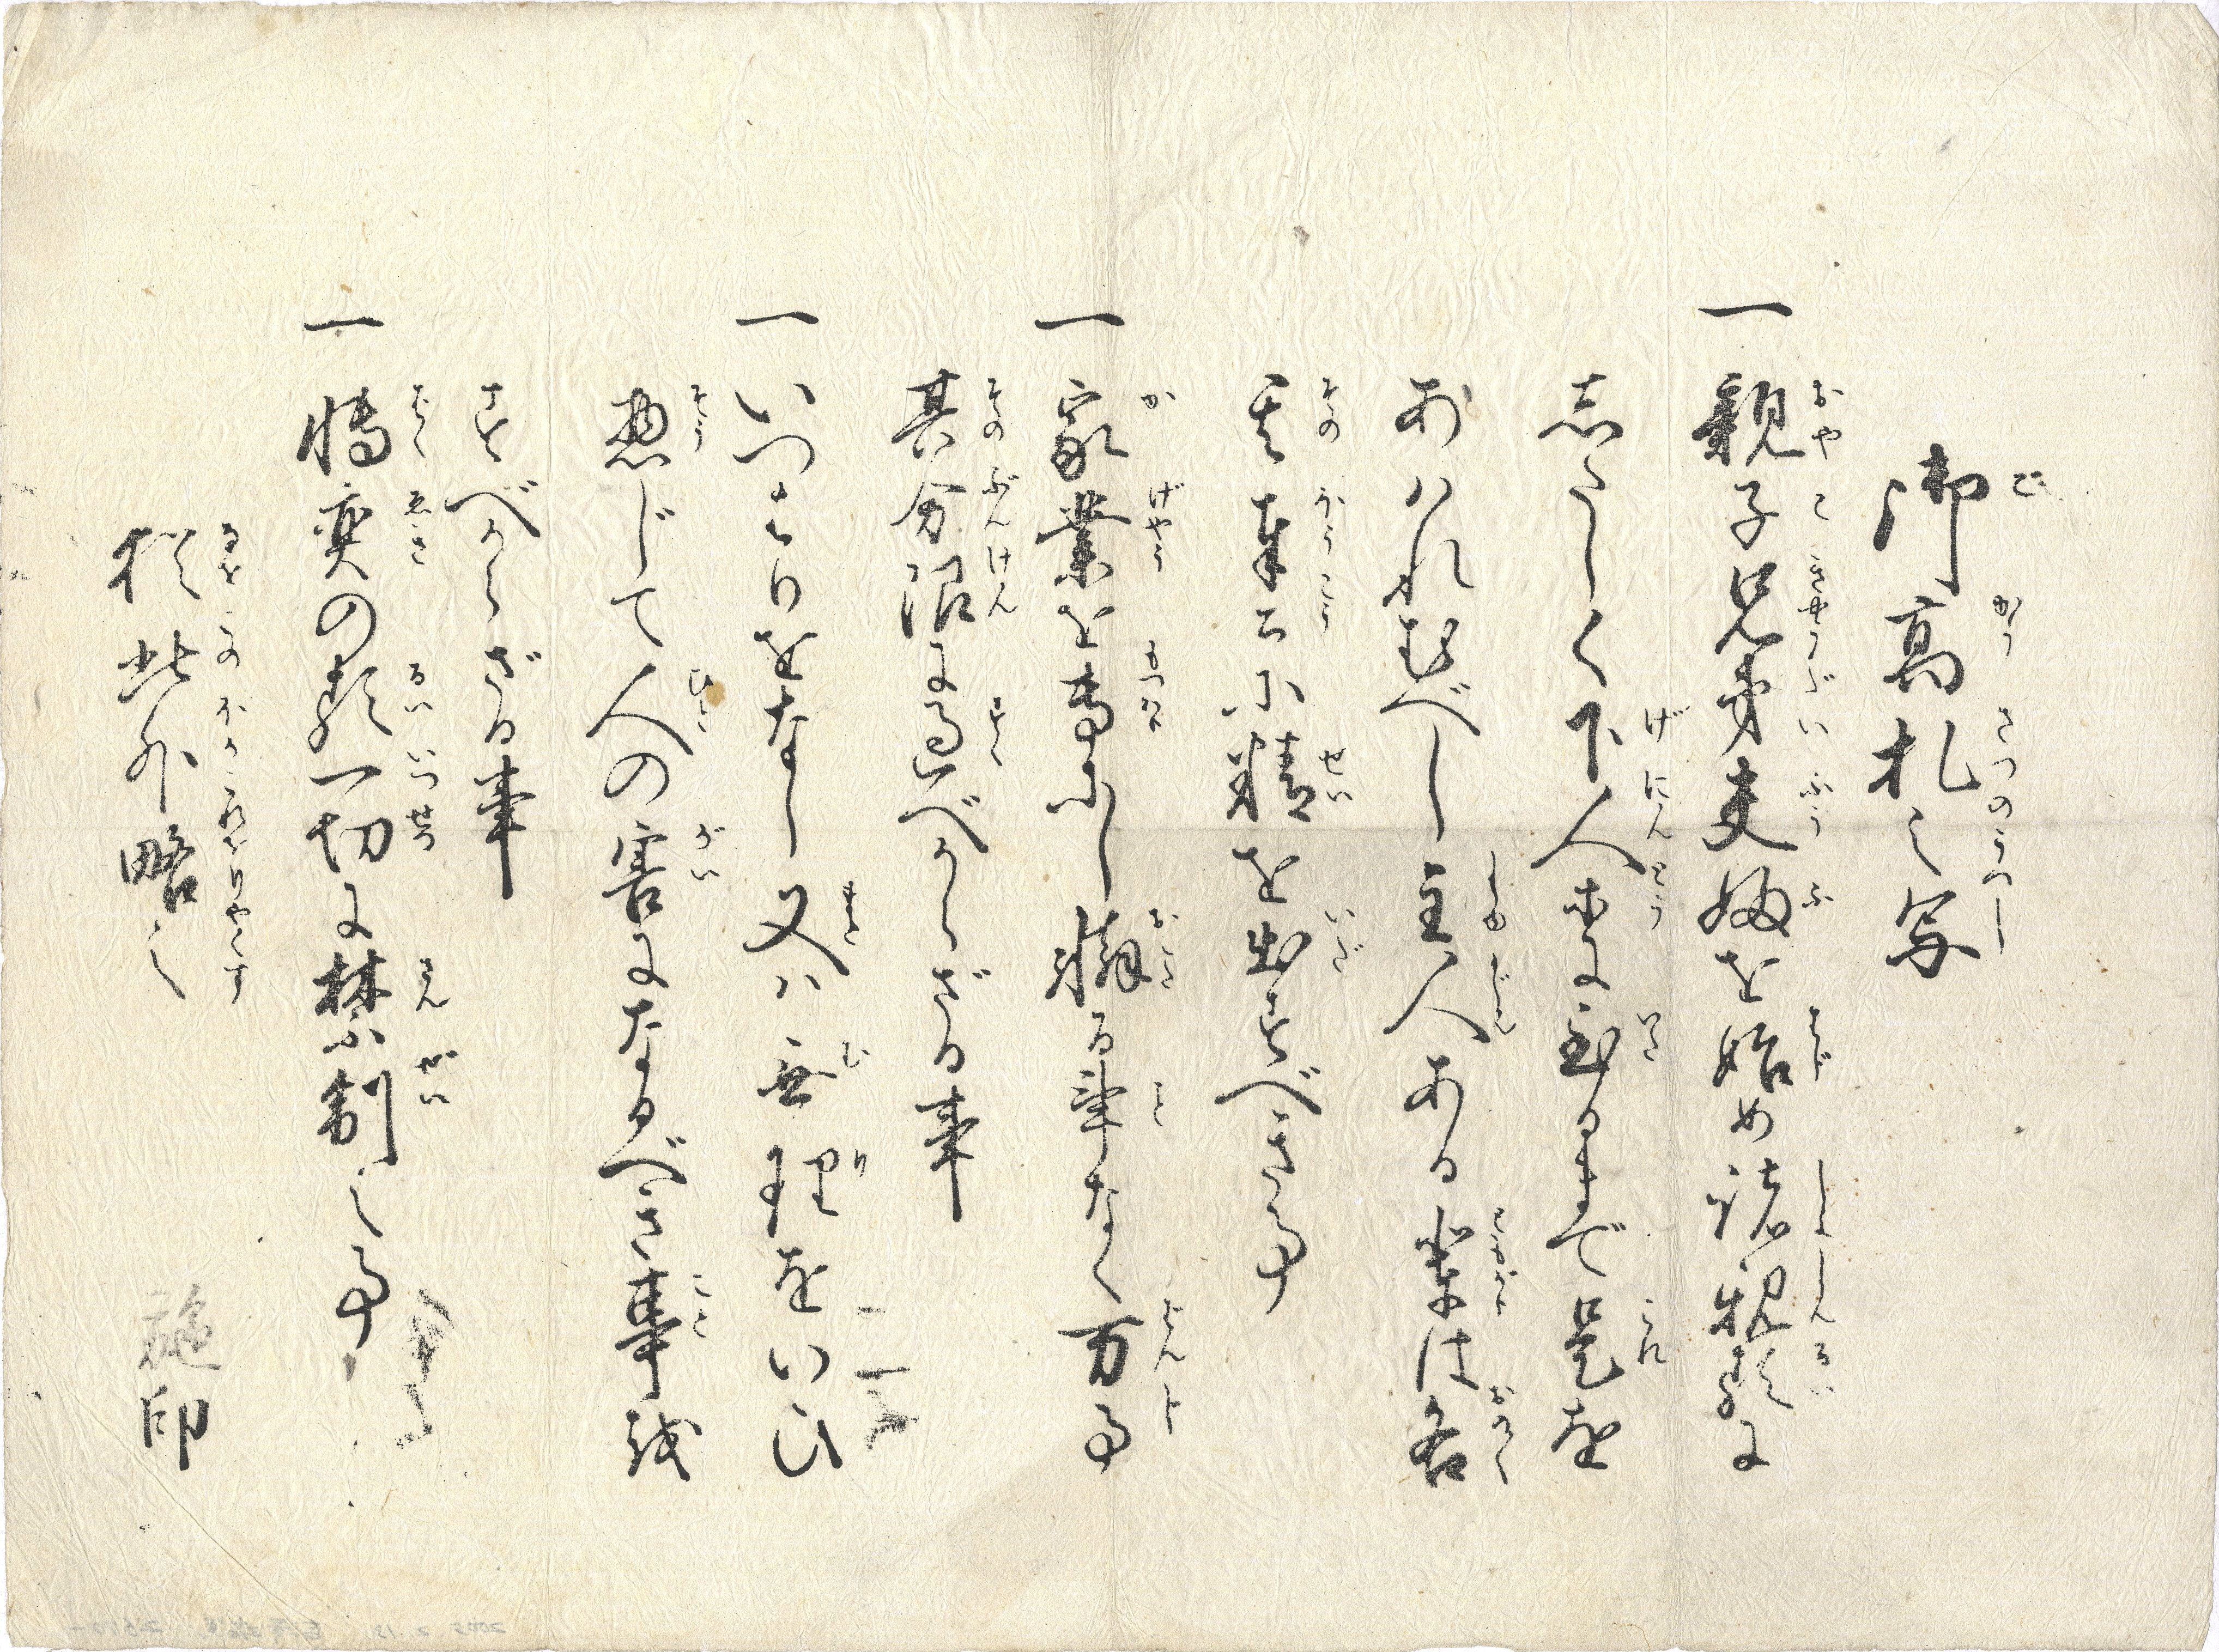 御高札之写
一親子兄弟夫婦を始め諸親類に
志たしく下人等に至るまで是を
あハれむべし主人ある輩は各
其奉公に精を出すべき事
一家業を専にし懈る事なく万事
其分限に過べからざる事
一いつはりをなし又ハ無理をいひ
惣じて人の害になるべき事を
すべからざる事
一博奕の類一切に禁制之事
於此外略之
施印